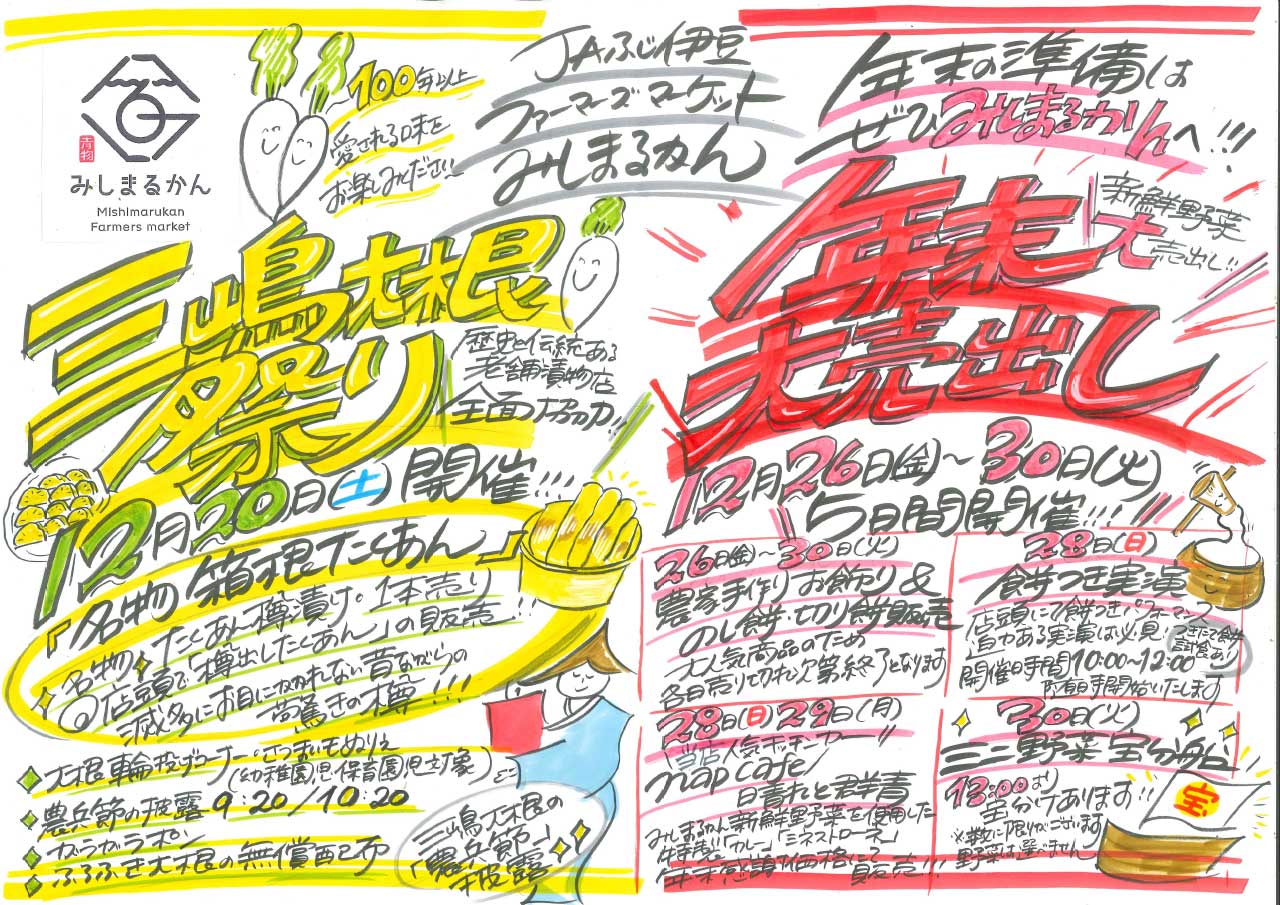 みしまるかん
Mishimarukan
Farmers market
100年以上
愛される味を
お楽しみください
JAふじ伊豆
ファーマーズマーケット
みしまるかん
三嶋大根
祭り
歴史と伝統ある
老舗漬物店
全面協力!!
12月20日(土)開催!!!
「名物 箱根たくあん」
名物 たくあん樽漬け・1本売り
◎店頭で「樽出したくあん」の販売!!
滅多にお目にかかれない昔ながらの
樽!!!
大根輪投げコーナー・さつまいもぬりえ
(幼稚園児・保育園児対象)
農兵節の披露 9:20/10:20
ガラガラポン
ふろふき大根の無償配布
三嶋大根の
「農兵節」
披露
年末の準備は
ぜひみしまるかんへ!!!
新鮮野菜
大売出し!!
年末
大売出し
12月26日(金)~30日(火)
5日間開催!!!!
26日(金)~30日(火)
農家手作りお飾り&
のし餅・切り餅販売
大人気商品のため
各日売り切れ次第終了となります
28日(日)
餅つき実演
店頭にて餅つきパフォーマンス
自力ある実演は必見
つきたて餅
試食あり
開催時間10:00~12:00
随時開始いたします
28日(日)29日(月)
当店人気キッチンカー
nap cafe
日晴れと群青
みしまるかん新鮮野菜を使用した
特製「カレー」「ミネストローネ」
年末感謝価格にて
販売!!!
30日(火)
ミニ野菜宝分船
13:00より
宝分けあります!!
※数に限りがございます
野菜は選べません
宝